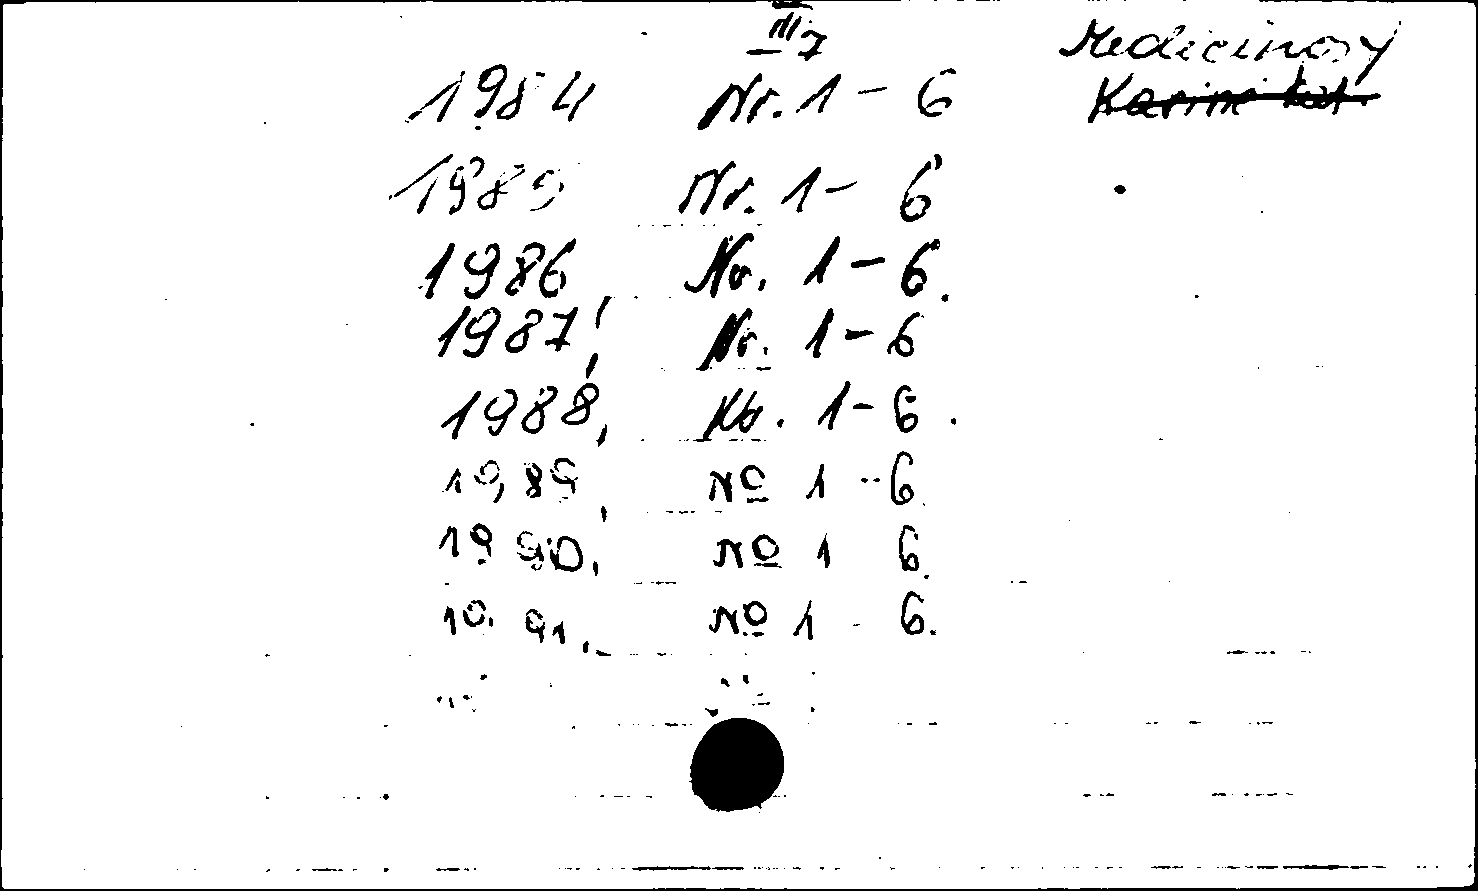 III 7
Medicinos
1984 Nr. 1 - 6
1985 Nr. 1 - 6
1986, Nr. 1 - 6.
1987, Nr. 1 - 6
1988, Nr. 1 - 6.
1989, № 1 - 6
1990, № 1 6.
1991, № 1 - 6.